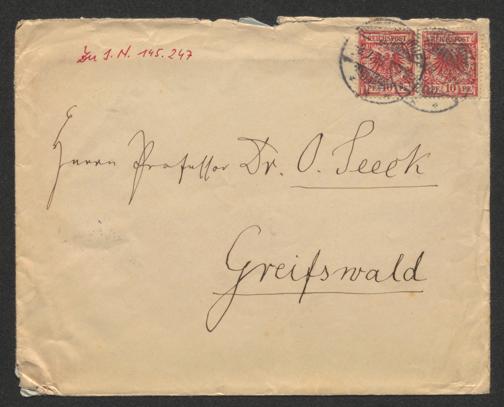 Zu I.N. 145.247
REICHSPOST REICHSPOST
10 PF. 10 PF.
Herrn Professor Dr. O. Seeck
Greifswald